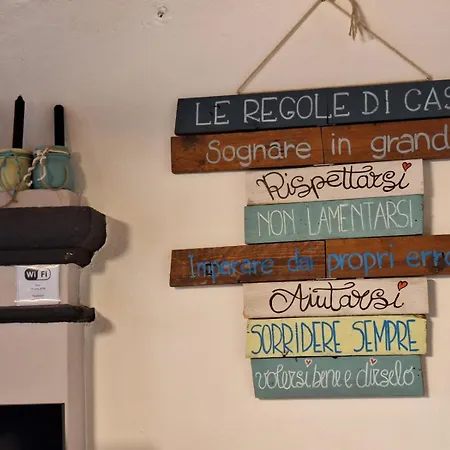 LE REGOLE DI CAS
Sognare in grand
Rispettarsi
NON LAMENTARSI
Imparare dai propri erro
Aiutarsi
SORRIDERE SEMPRE
volersi bene e dirselo
Wi Fi